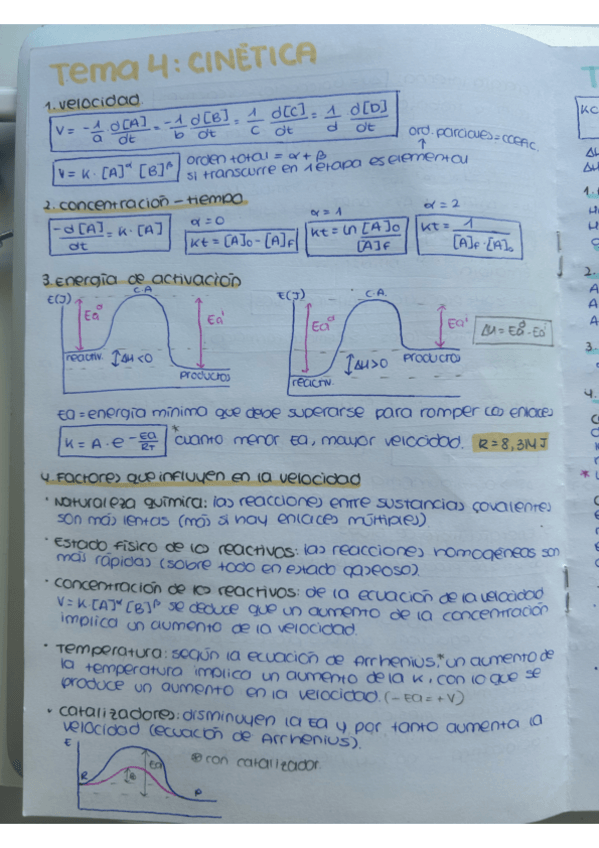 Tema 4: CINÉTICA
1. velocidad
V = -1/a d[A]/dt = -1/b d[B]/dt = 1/c d[C]/dt = 1/d d[D]/dt
ord. parciales = coefic.
V = K · [A]^α [B]^β
orden total = α + β
si transcurre en 1 etapa es elemental
2. concentración - tiempo
-d[A]/dt = K · [A]
α = 0
Kt = [A]o - [A]F
α = 1
Kt = ln [A]o/[A]F
α = 2
Kt = 1/[A]F · [A]o
3. Energía de activación
E(J) C.A
Ea^d
Ea^i
reactiv.
ΔH < 0
productos
E(J) C.A.
Ea^d
Ea^i
reactiv.
ΔH > 0
productos
ΔH = Ea^d - Ea^i
Ea = energía mínima que debe superarse para romper los enlaces
K = A · e^-Ea/RT
* cuanto menor Ea, mayor velocidad. R = 8,314 J
4. Factores que influyen en la velocidad
· Naturaleza química: las reacciones entre sustancias covalentes
son más lentas (más si hay enlaces múltiples)
· Estado físico de los reactivos: las reacciones homogéneas son
más rápidas (sobre todo en estado gaseoso).
· Concentración de los reactivos: de la ecuación de la velocidad
V = K [A]^α [B]^β se deduce que un aumento de la concentración
implica un aumento de la velocidad.
· Temperatura: según la ecuación de Arrhenius,* un aumento de
la temperatura implica un aumento de la K, con lo que se
produce un aumento en la velocidad. (- Ea = + V)
· Catalizadores: disminuyen la Ea y por tanto aumenta la
velocidad (ecuación de Arrhenius).
E
R
Ea
P
⊛ con catalizador